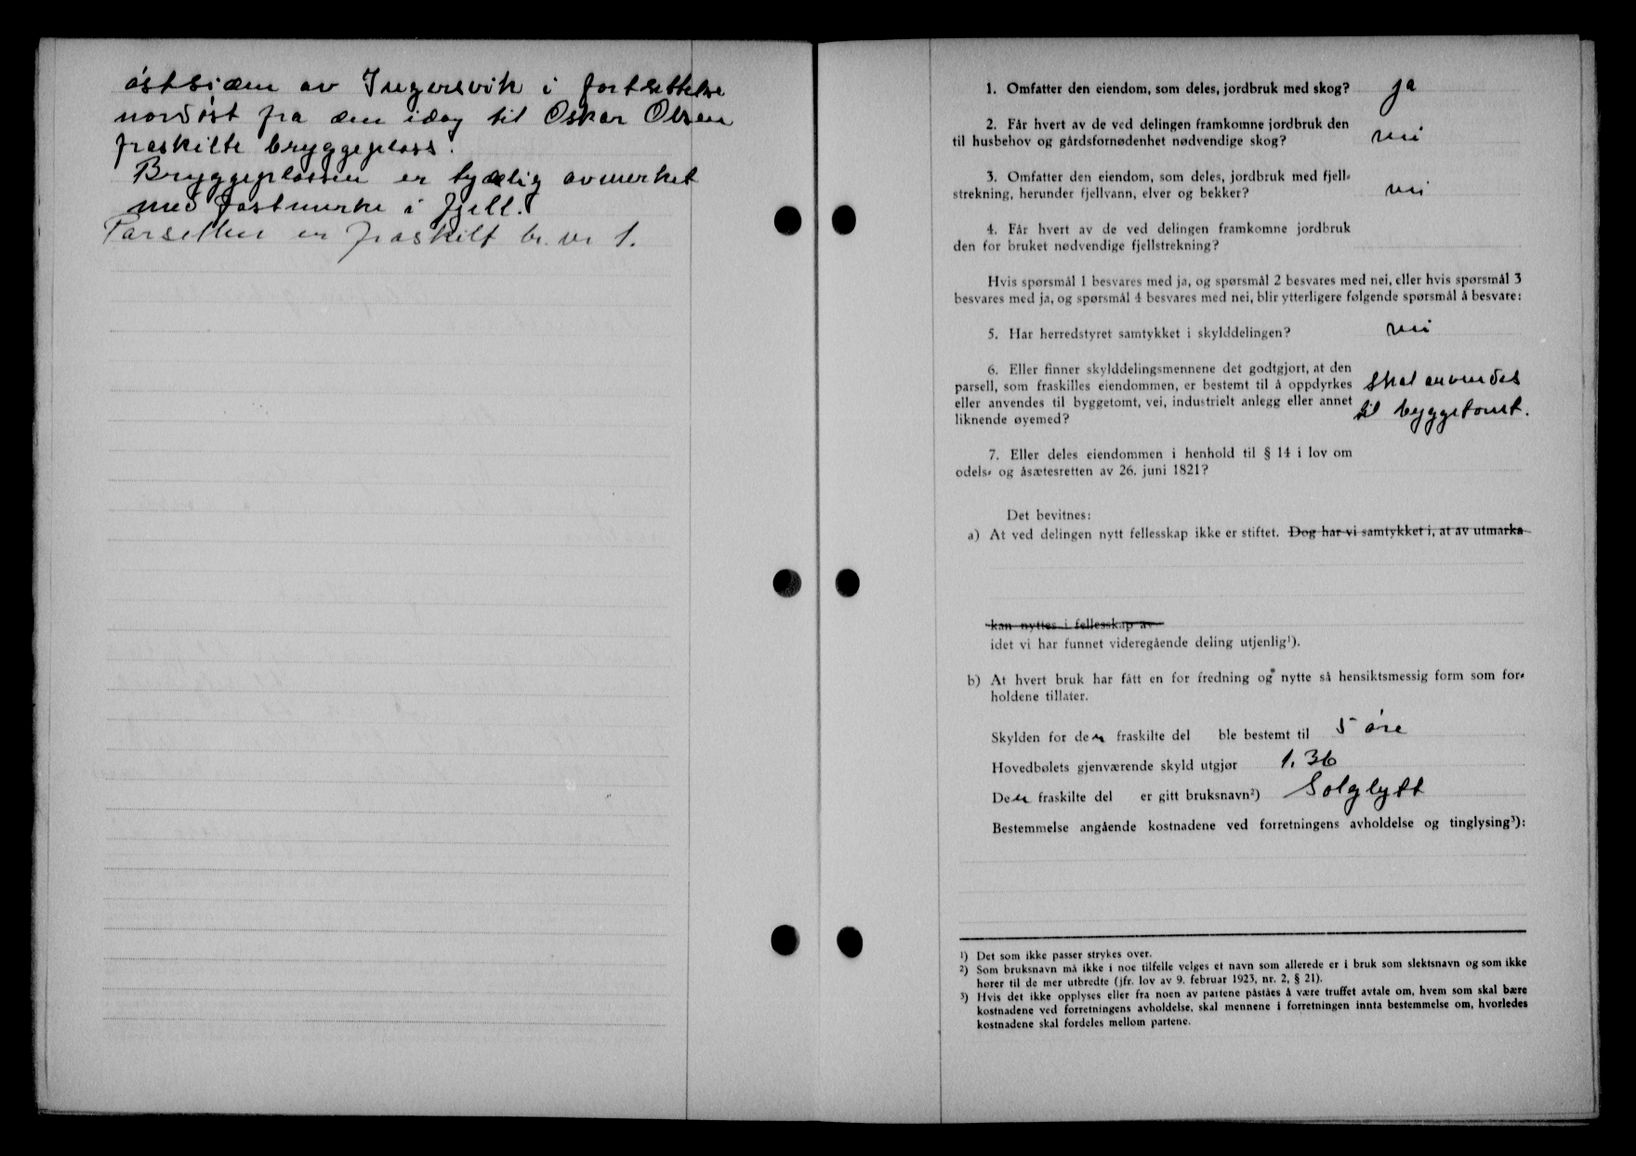 østsiden av Ingersvik i fortsettelse
nordøst fra den idag til Oskar Olsen
fraskilte bryggeplass.
Bryggeplassen er tydelig avmerket
med fastmerke i fjell.
Parsellen er fraskilt br. nr 1.
1. Omfatter den eiendom, som deles, jordbruk med skog? ja
2. Får hvert av de ved delingen framkomne jordbruk den
til husbehov og gårdsfornødenhet nødvendige skog? nei
3. Omfatter den eiendom, som deles, jordbruk med fjell-
strekning, herunder fjellvann, elver og bekker? nei
4. Får hvert av de ved delingen framkomne jordbruk
den for bruket nødvendige fjellstrekning?
Hvis spørsmål 1 besvares med ja, og spørsmål 2 besvares med nei, eller hvis spørsmål 3
besvares med ja, og spørsmål 4 besvares med nei, blir ytterligere følgende spørsmål å besvare:
5. Har herredstyret samtykket i skylddelingen? nei
6. Eller finner skylddelingsmennene det godtgjort, at den
parsell, som fraskilles eiendommen, er bestemt til å oppdyrkes skal anvendes
eller anvendes til byggetomt, vei, industrielt anlegg eller annet til byggetomt.
liknende øyemed?
7. Eller deles eiendommen i henhold til § 14 i lov om
odels- og åsætesretten av 26. juni 1821?
Det bevitnes:
a) At ved delingen nytt fellesskap ikke er stiftet. Dog har vi samtykket i, at av utmarka
kan nyttes i fellesskap av
idet vi har funnet videregående deling utjenlig¹).
b) At hvert bruk har fått en for fredning og nytte så hensiktsmessig form som for-
holdene tillater.
Skylden for den fraskilte del ble bestemt til 5 øre
Hovedbølets gjenværende skyld utgjør 1.36
Den fraskilte del er gitt bruksnavn²) Solglytt
Bestemmelse angående kostnadene ved forretningens avholdelse og tinglysing³):
¹) Det som ikke passer strykes over.
²) Som bruksnavn må ikke i noe tilfelle velges et navn som allerede er i bruk som slektsnavn og som ikke
hører til de mer utbredte (jfr. lov av 9. februar 1923, nr. 2, § 21).
³) Hvis det ikke opplyses eller fra noen av partene påståes å være truffet avtale om, hvem som skal bære
kostnadene ved forretningens avholdelse, skal mennene i forretningen innta bestemmelse om, hvorledes
kostnadene skal fordeles mellom partene.